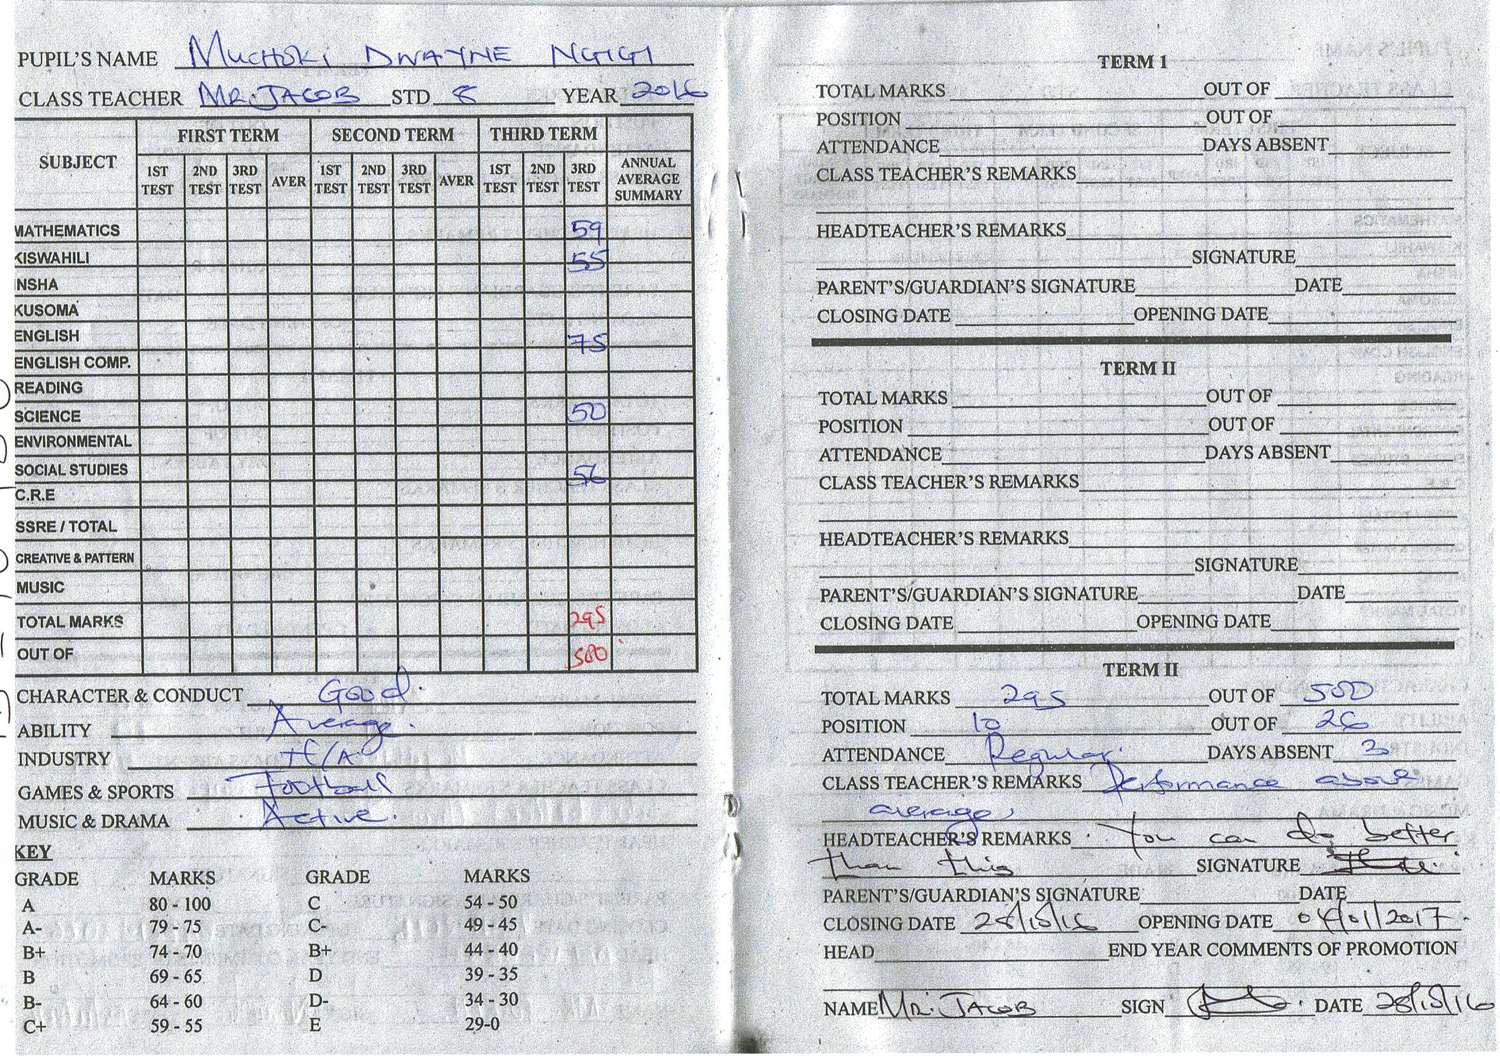 PUPIL'S NAME MUCHOKI DWAYNE NGIGI
CLASS TEACHER MR. JACOB STD 8 YEAR 2016
SUBJECT FIRST TERM SECOND TERM THIRD TERM ANNUAL AVERAGE SUMMARY
1ST TEST 2ND TEST 3RD TEST AVER 1ST TEST 2ND TEST 3RD TEST AVER 1ST TEST 2ND TEST 3RD TEST
MATHEMATICS 59
KISWAHILI 55
INSHA
KUSOMA
ENGLISH 75
ENGLISH COMP.
READING
SCIENCE 50
ENVIRONMENTAL
SOCIAL STUDIES 56
C.R.E
SSRE / TOTAL
CREATIVE & PATTERN
MUSIC
TOTAL MARKS 295
OUT OF 500
CHARACTER & CONDUCT Good.
ABILITY Average.
INDUSTRY H/A
GAMES & SPORTS Football
MUSIC & DRAMA Active.
KEY
GRADE MARKS GRADE MARKS
A 80 - 100 C 54 - 50
A- 79 - 75 C- 49 - 45
B+ 74 - 70 B+ 44 - 40
B 69 - 65 D 39 - 35
B- 64 - 60 D- 34 - 30
C+ 59 - 55 E 29-0
TERM 1
TOTAL MARKS OUT OF
POSITION OUT OF
ATTENDANCE DAYS ABSENT
CLASS TEACHER'S REMARKS
HEADTEACHER'S REMARKS
SIGNATURE
PARENT'S/GUARDIAN'S SIGNATURE DATE
CLOSING DATE OPENING DATE
TERM II
TOTAL MARKS OUT OF
POSITION OUT OF
ATTENDANCE DAYS ABSENT
CLASS TEACHER'S REMARKS
HEADTEACHER'S REMARKS
SIGNATURE
PARENT'S/GUARDIAN'S SIGNATURE DATE
CLOSING DATE OPENING DATE
TERM II
TOTAL MARKS 295 OUT OF 500
POSITION 10 OUT OF 26
ATTENDANCE Regular. DAYS ABSENT 3
CLASS TEACHER'S REMARKS Performance above
average,
HEADTEACHER'S REMARKS You can do better
than this SIGNATURE
PARENT'S/GUARDIAN'S SIGNATURE DATE
CLOSING DATE OPENING DATE 04/01/2017.
HEAD END YEAR COMMENTS OF PROMOTION
NAME Mr. JACOB SIGN DATE